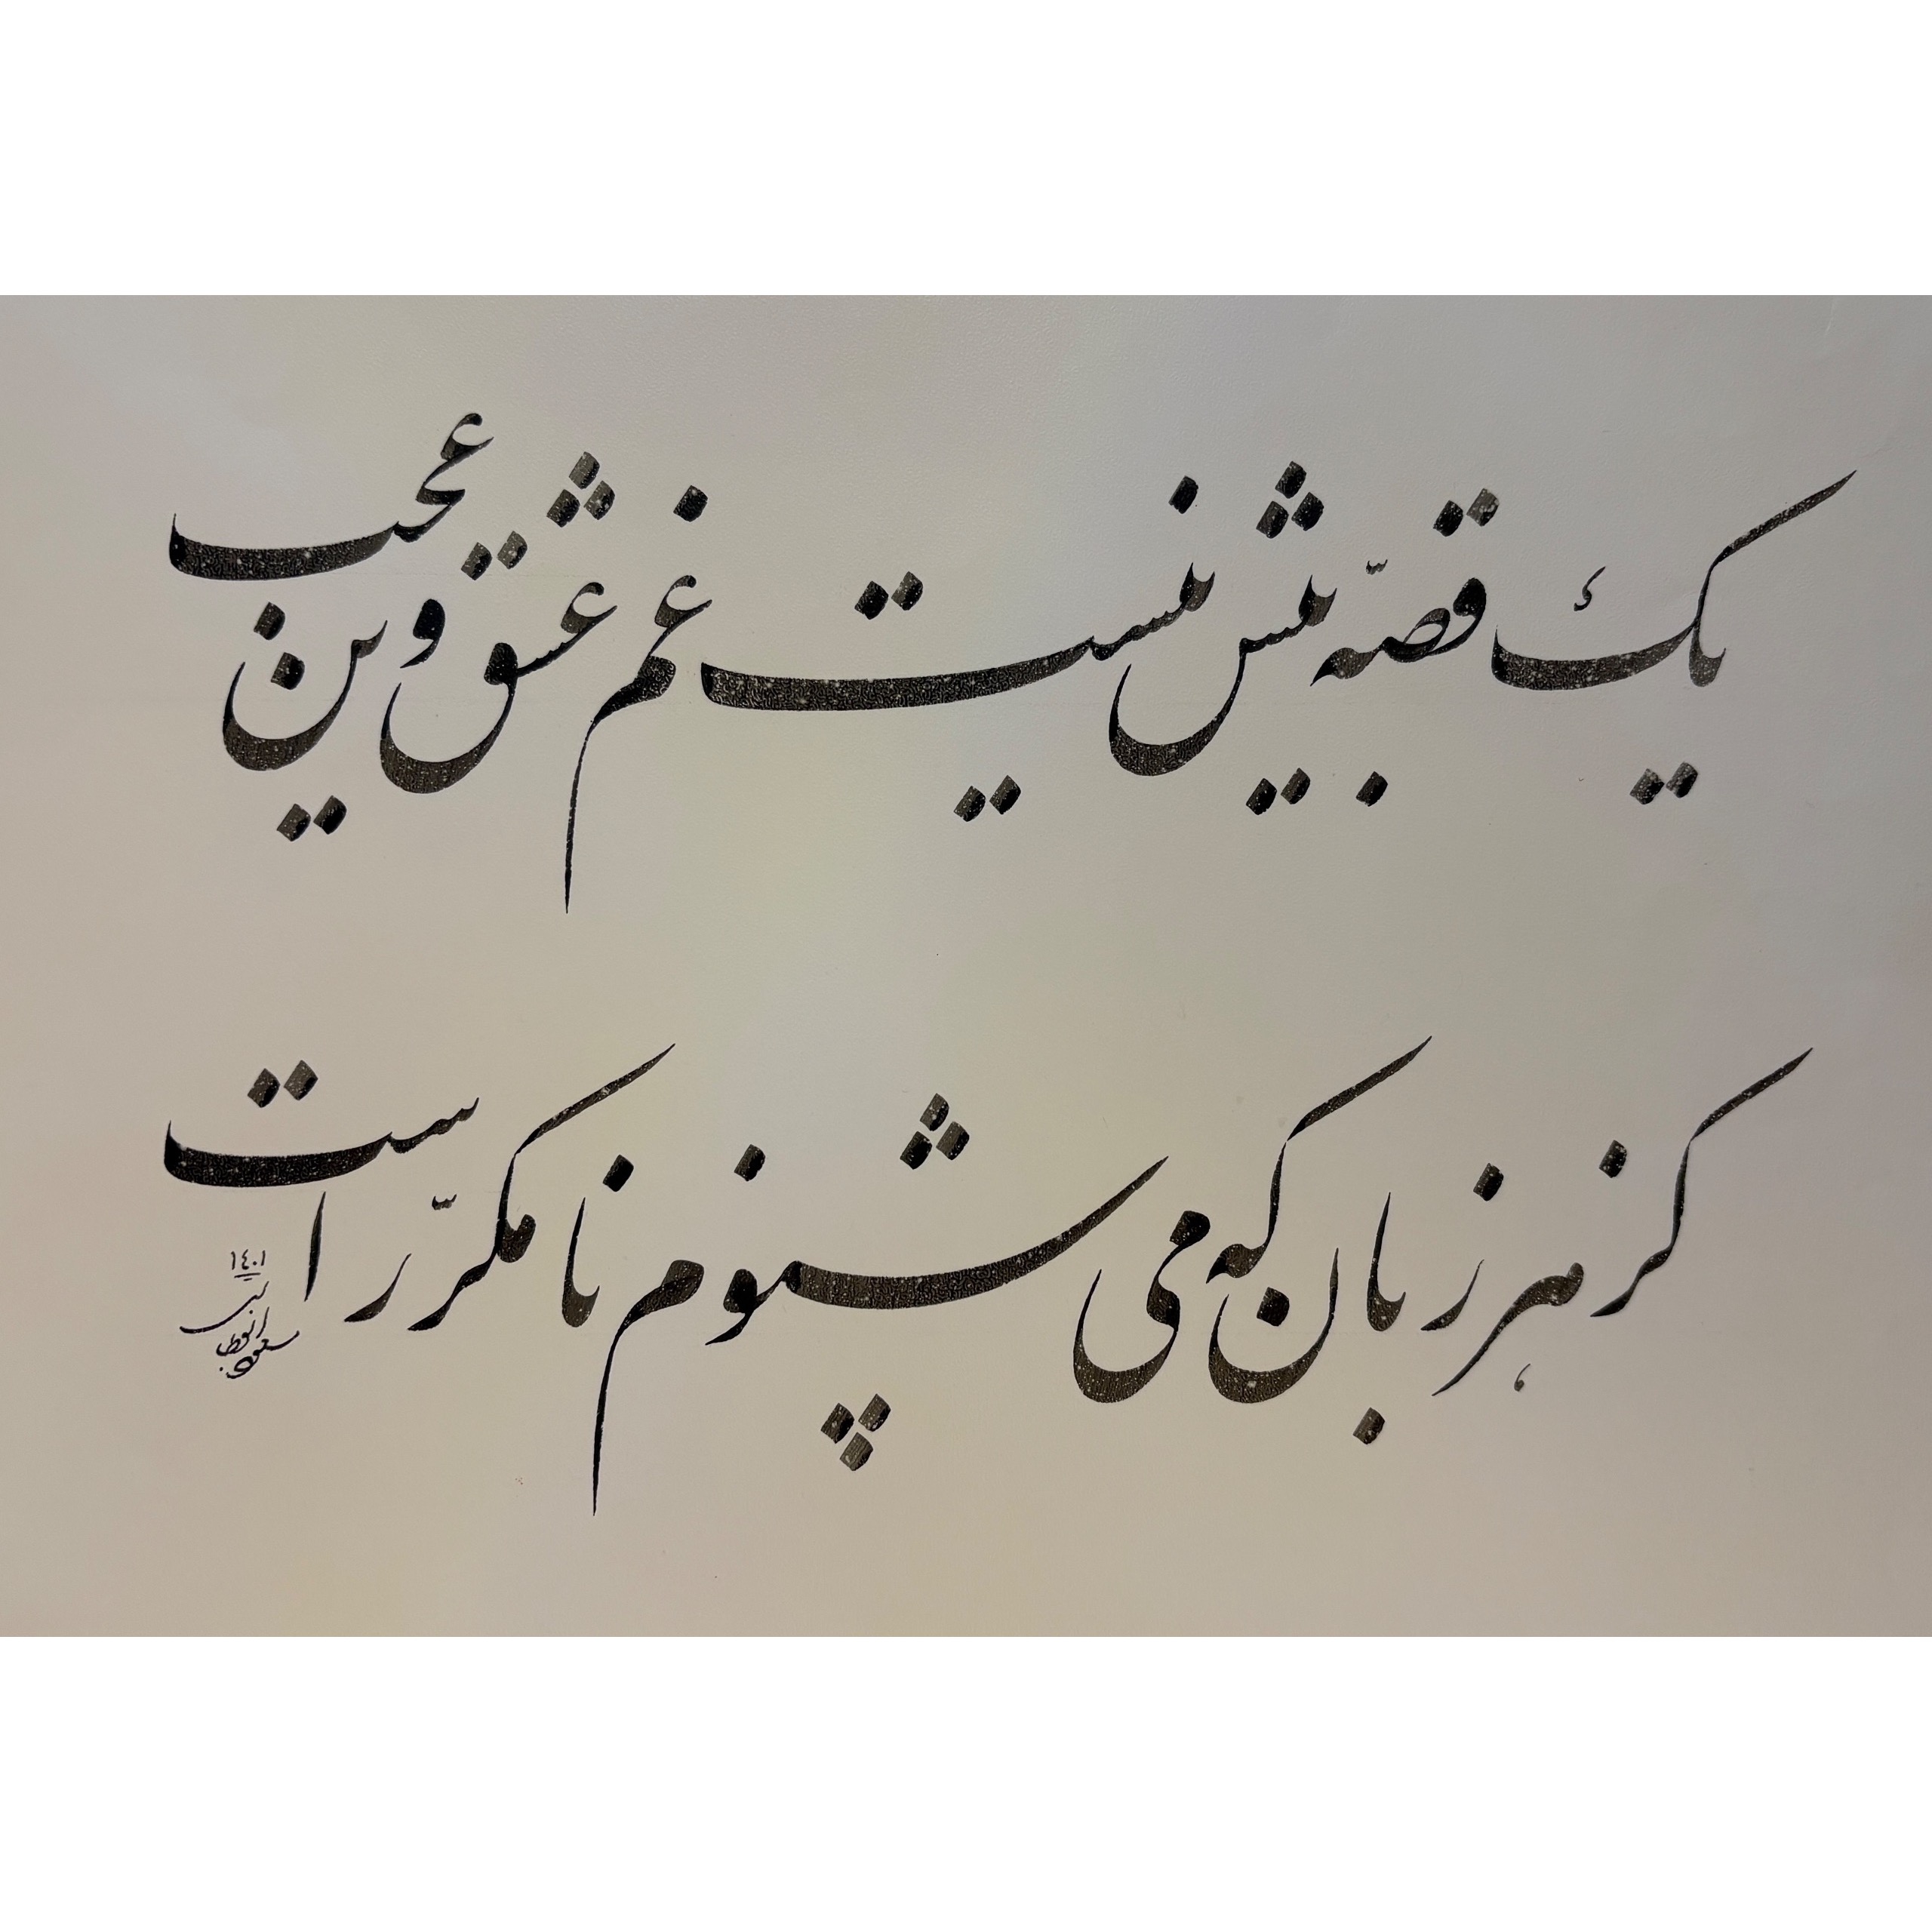 یک قصّه بیش نیست غم عشق وین عجب
کز هر زبان که می شنوم نا مکرّر است
١٤٠١
مسعود ابوطالبی